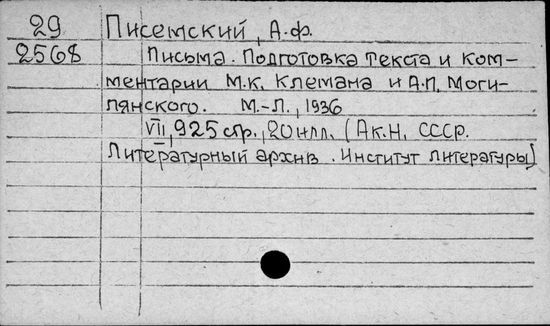 29 Писемский, А.Ф.
2568 Письма. Подготовка текста и ком-
ментарии М.К. Клемана и А.П. Моги-
лянского. М.-Л., 1936
VII, 925 стр., 20 илл. (Ак.Н. СССР.
Литературный архив. Институт литературы)